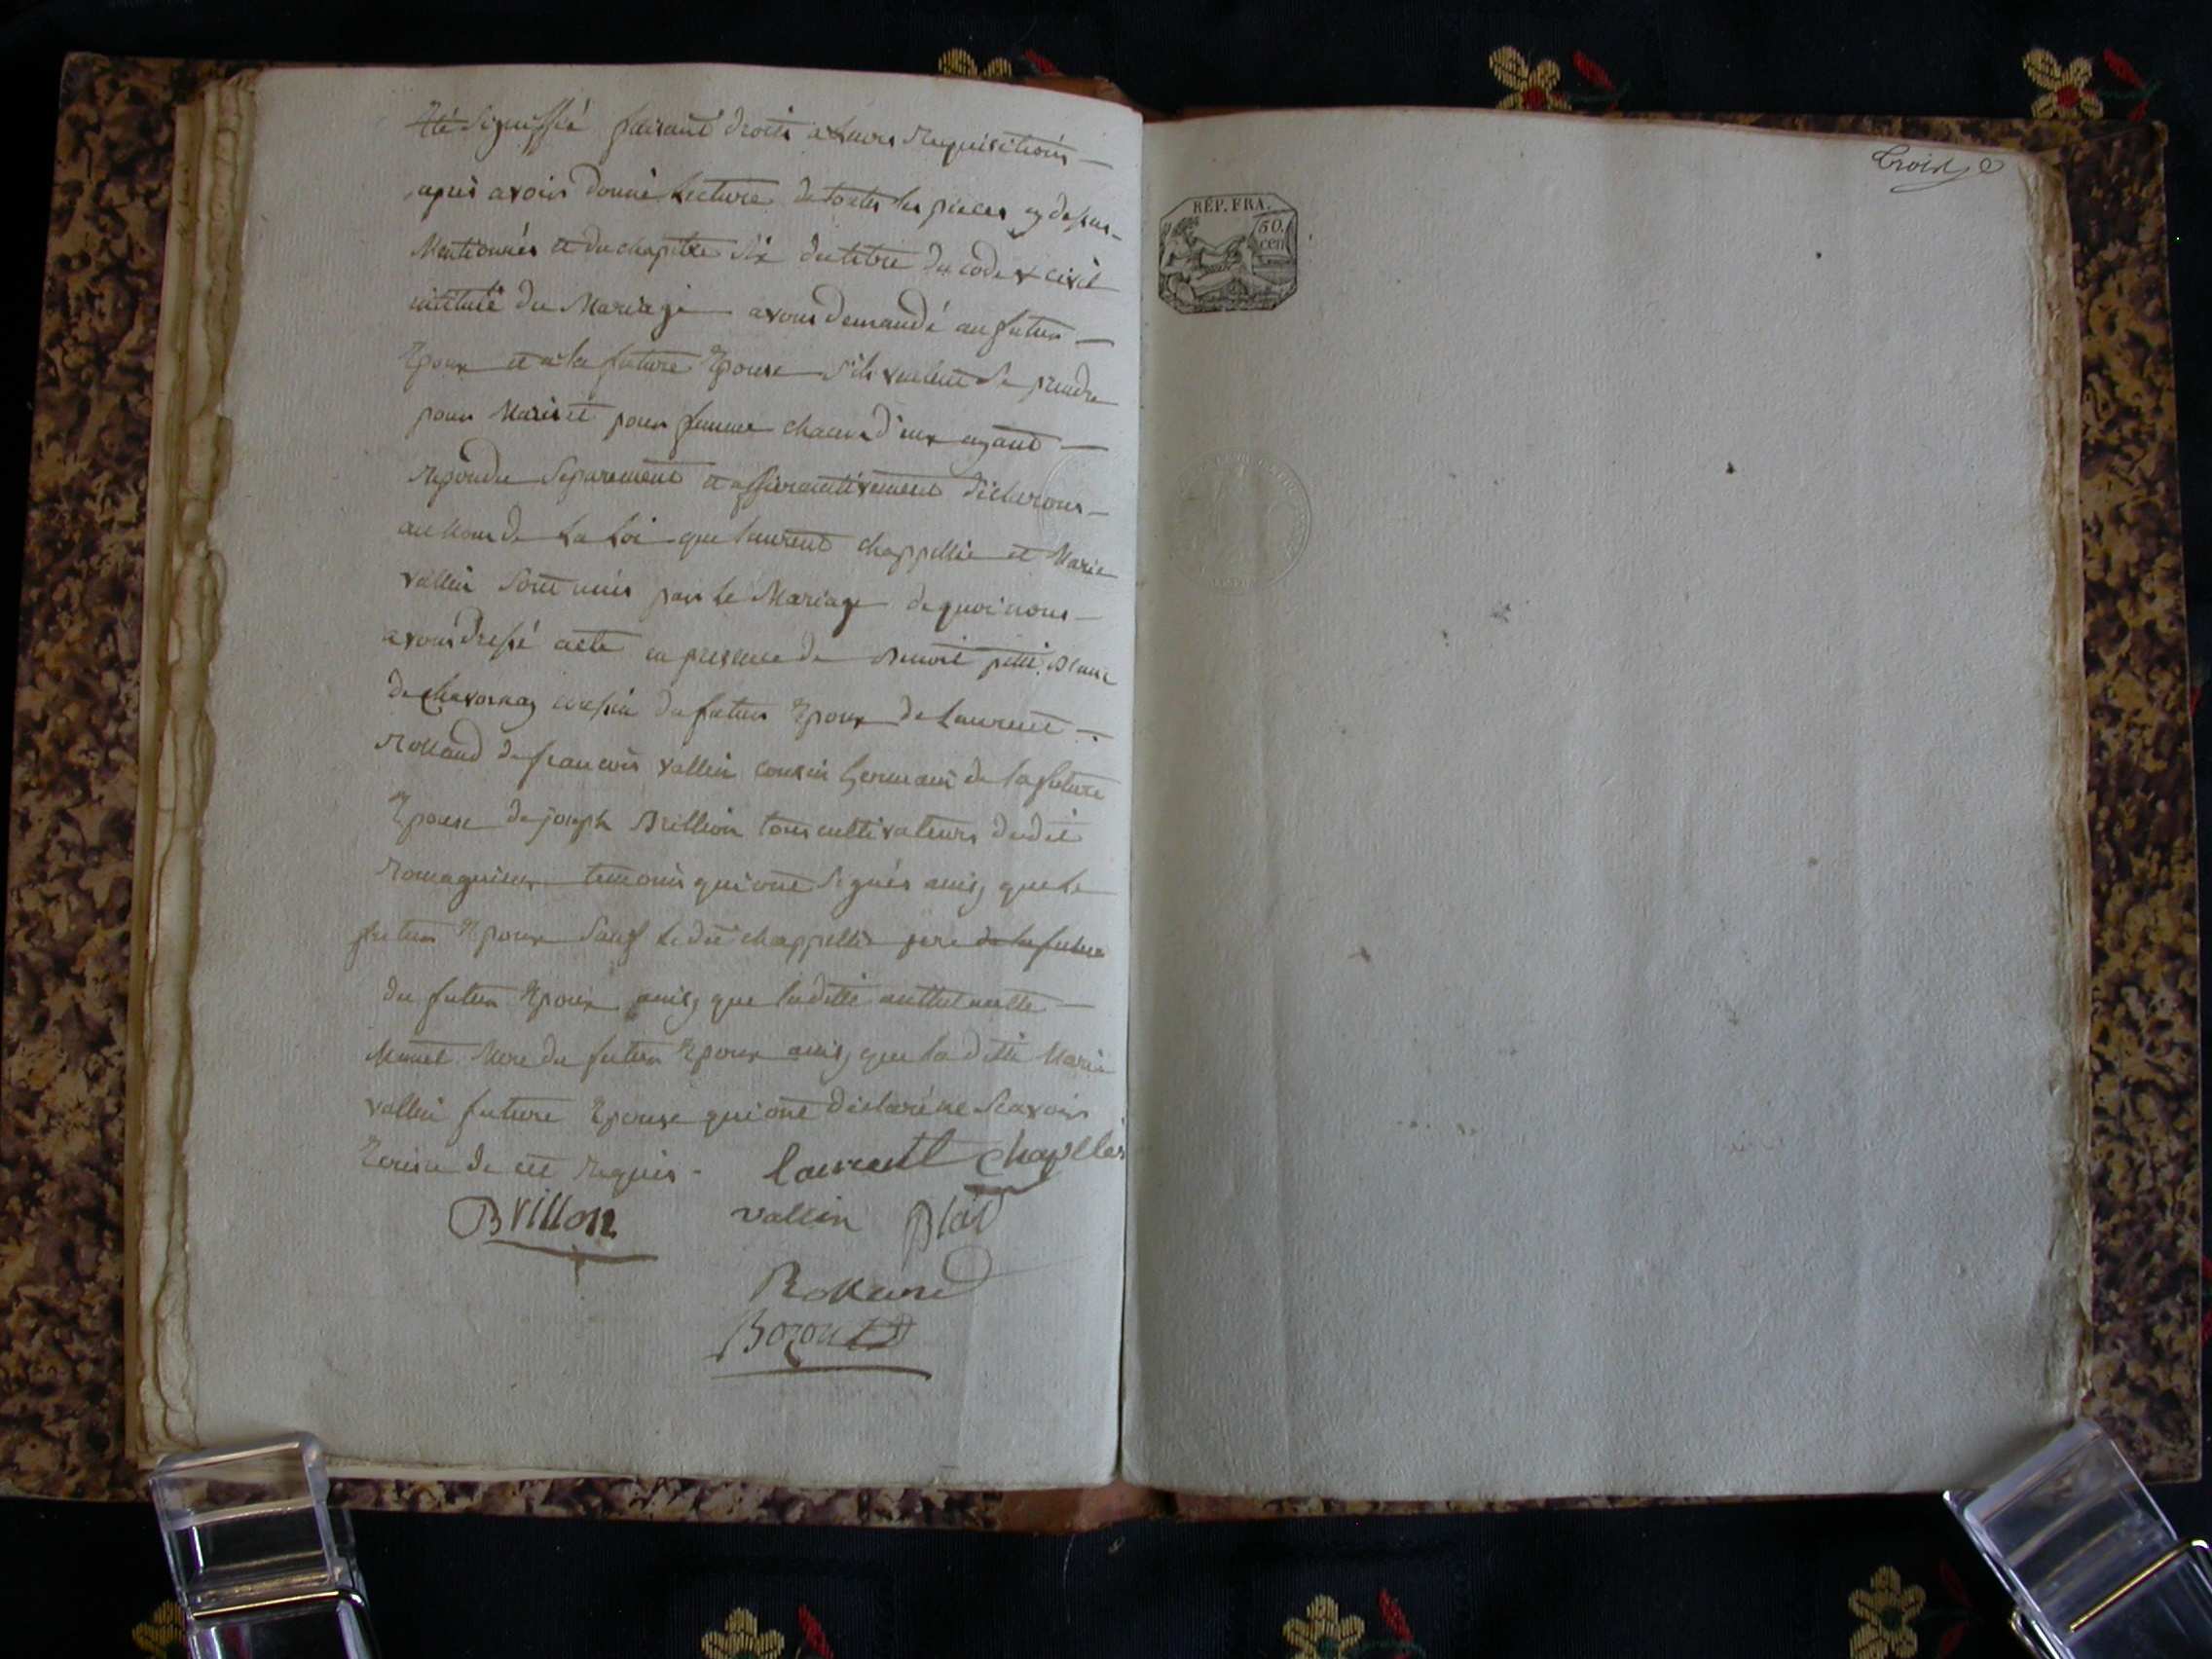 été signiffié faisant droits a Leurs requisitions
apres avoir donné Lecture de toutes les pieces cy dessus
Mentionnés et du chapitre six du titre du code civil
intitulé du Mariage avons demandé au futur
Epoux et a la future Epouse s'ils veulent se prendre
pour Maris et pour femme chacun d'eux ayant
repondu separement et affirmativement déclarons
au nom de La Loi que laurent chappellie et Marie
vallin sont unis par le Mariage de quoi nous
avons dressé acte en presence de Benoit petit Blanc
de du futur Epoux de Laurent
Rolland de francois vallin cousin Germain de la future
Epouse de joseph Brillion tous cultivateurs dudit
romagnieux temoins qui ont signés ainsy que Le
futur Epoux sauf Ledit chappellie pere de la future
du futur Epoux ainsy que laditte
Mere du futur Epoux ainsy que laditte Marie
vallin future Epouse qui ont déclaré ne scavoir
Ecrire de ce requis
laurent chapllie
Brillon vallin
Rolland
REP. FRA.
50.
cen
trois